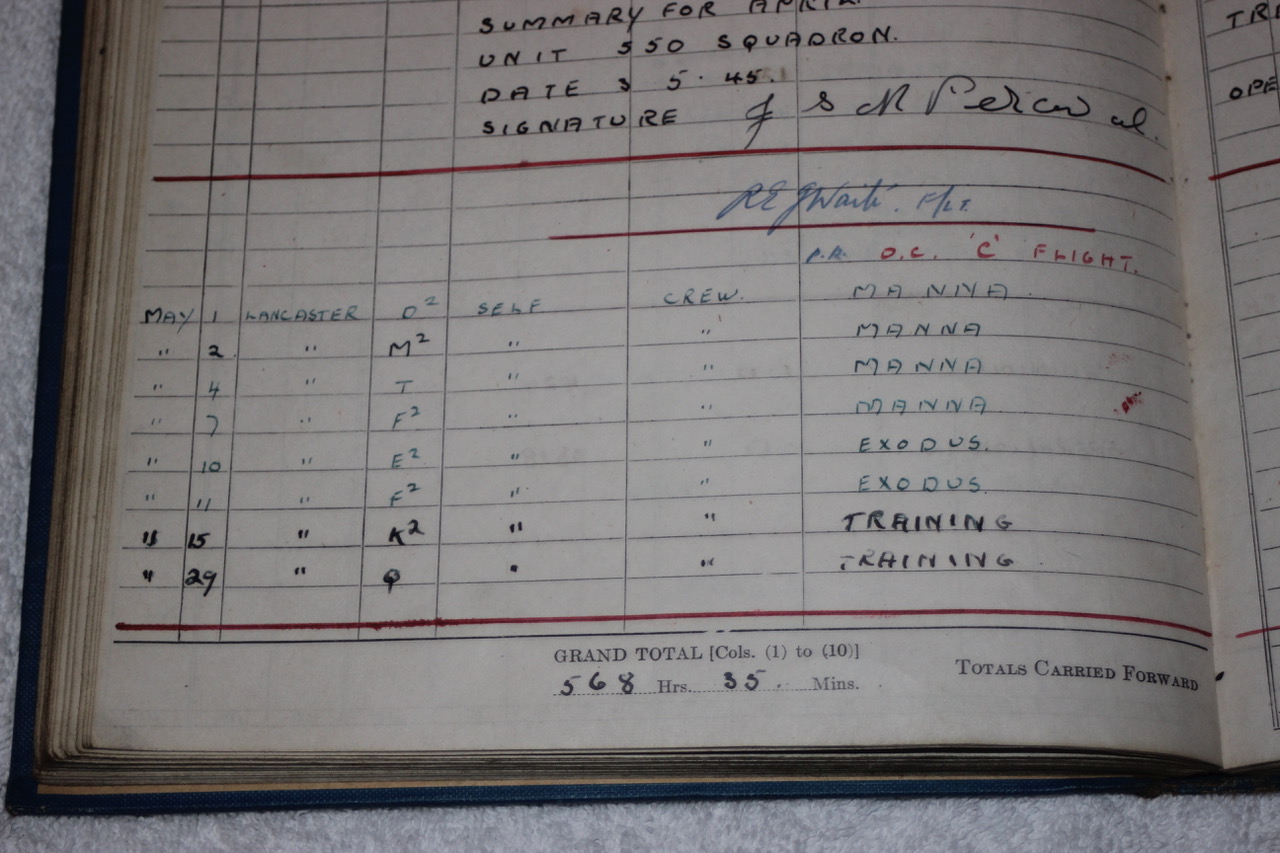 SUMMARY FOR APRIL
UNIT 550 SQUADRON.
DATE 3 5. 45.
SIGNATURE J S R Percival.
F/LT.
O.C. 'C' FLIGHT.
MAY 1 LANCASTER O² SELF CREW. MANNA
" 2 " M² " " MANNA
" 4 " T " " MANNA
" 7 " F² " " MANNA
" 10 " E² " " EXODUS.
" 11 " F² " " EXODUS
" 15 " K² " " TRAINING
" 29 " Q " " TRAINING
GRAND TOTAL [Cols. (1) to (10)]
568 Hrs. 35 Mins.
TOTALS CARRIED FORWARD